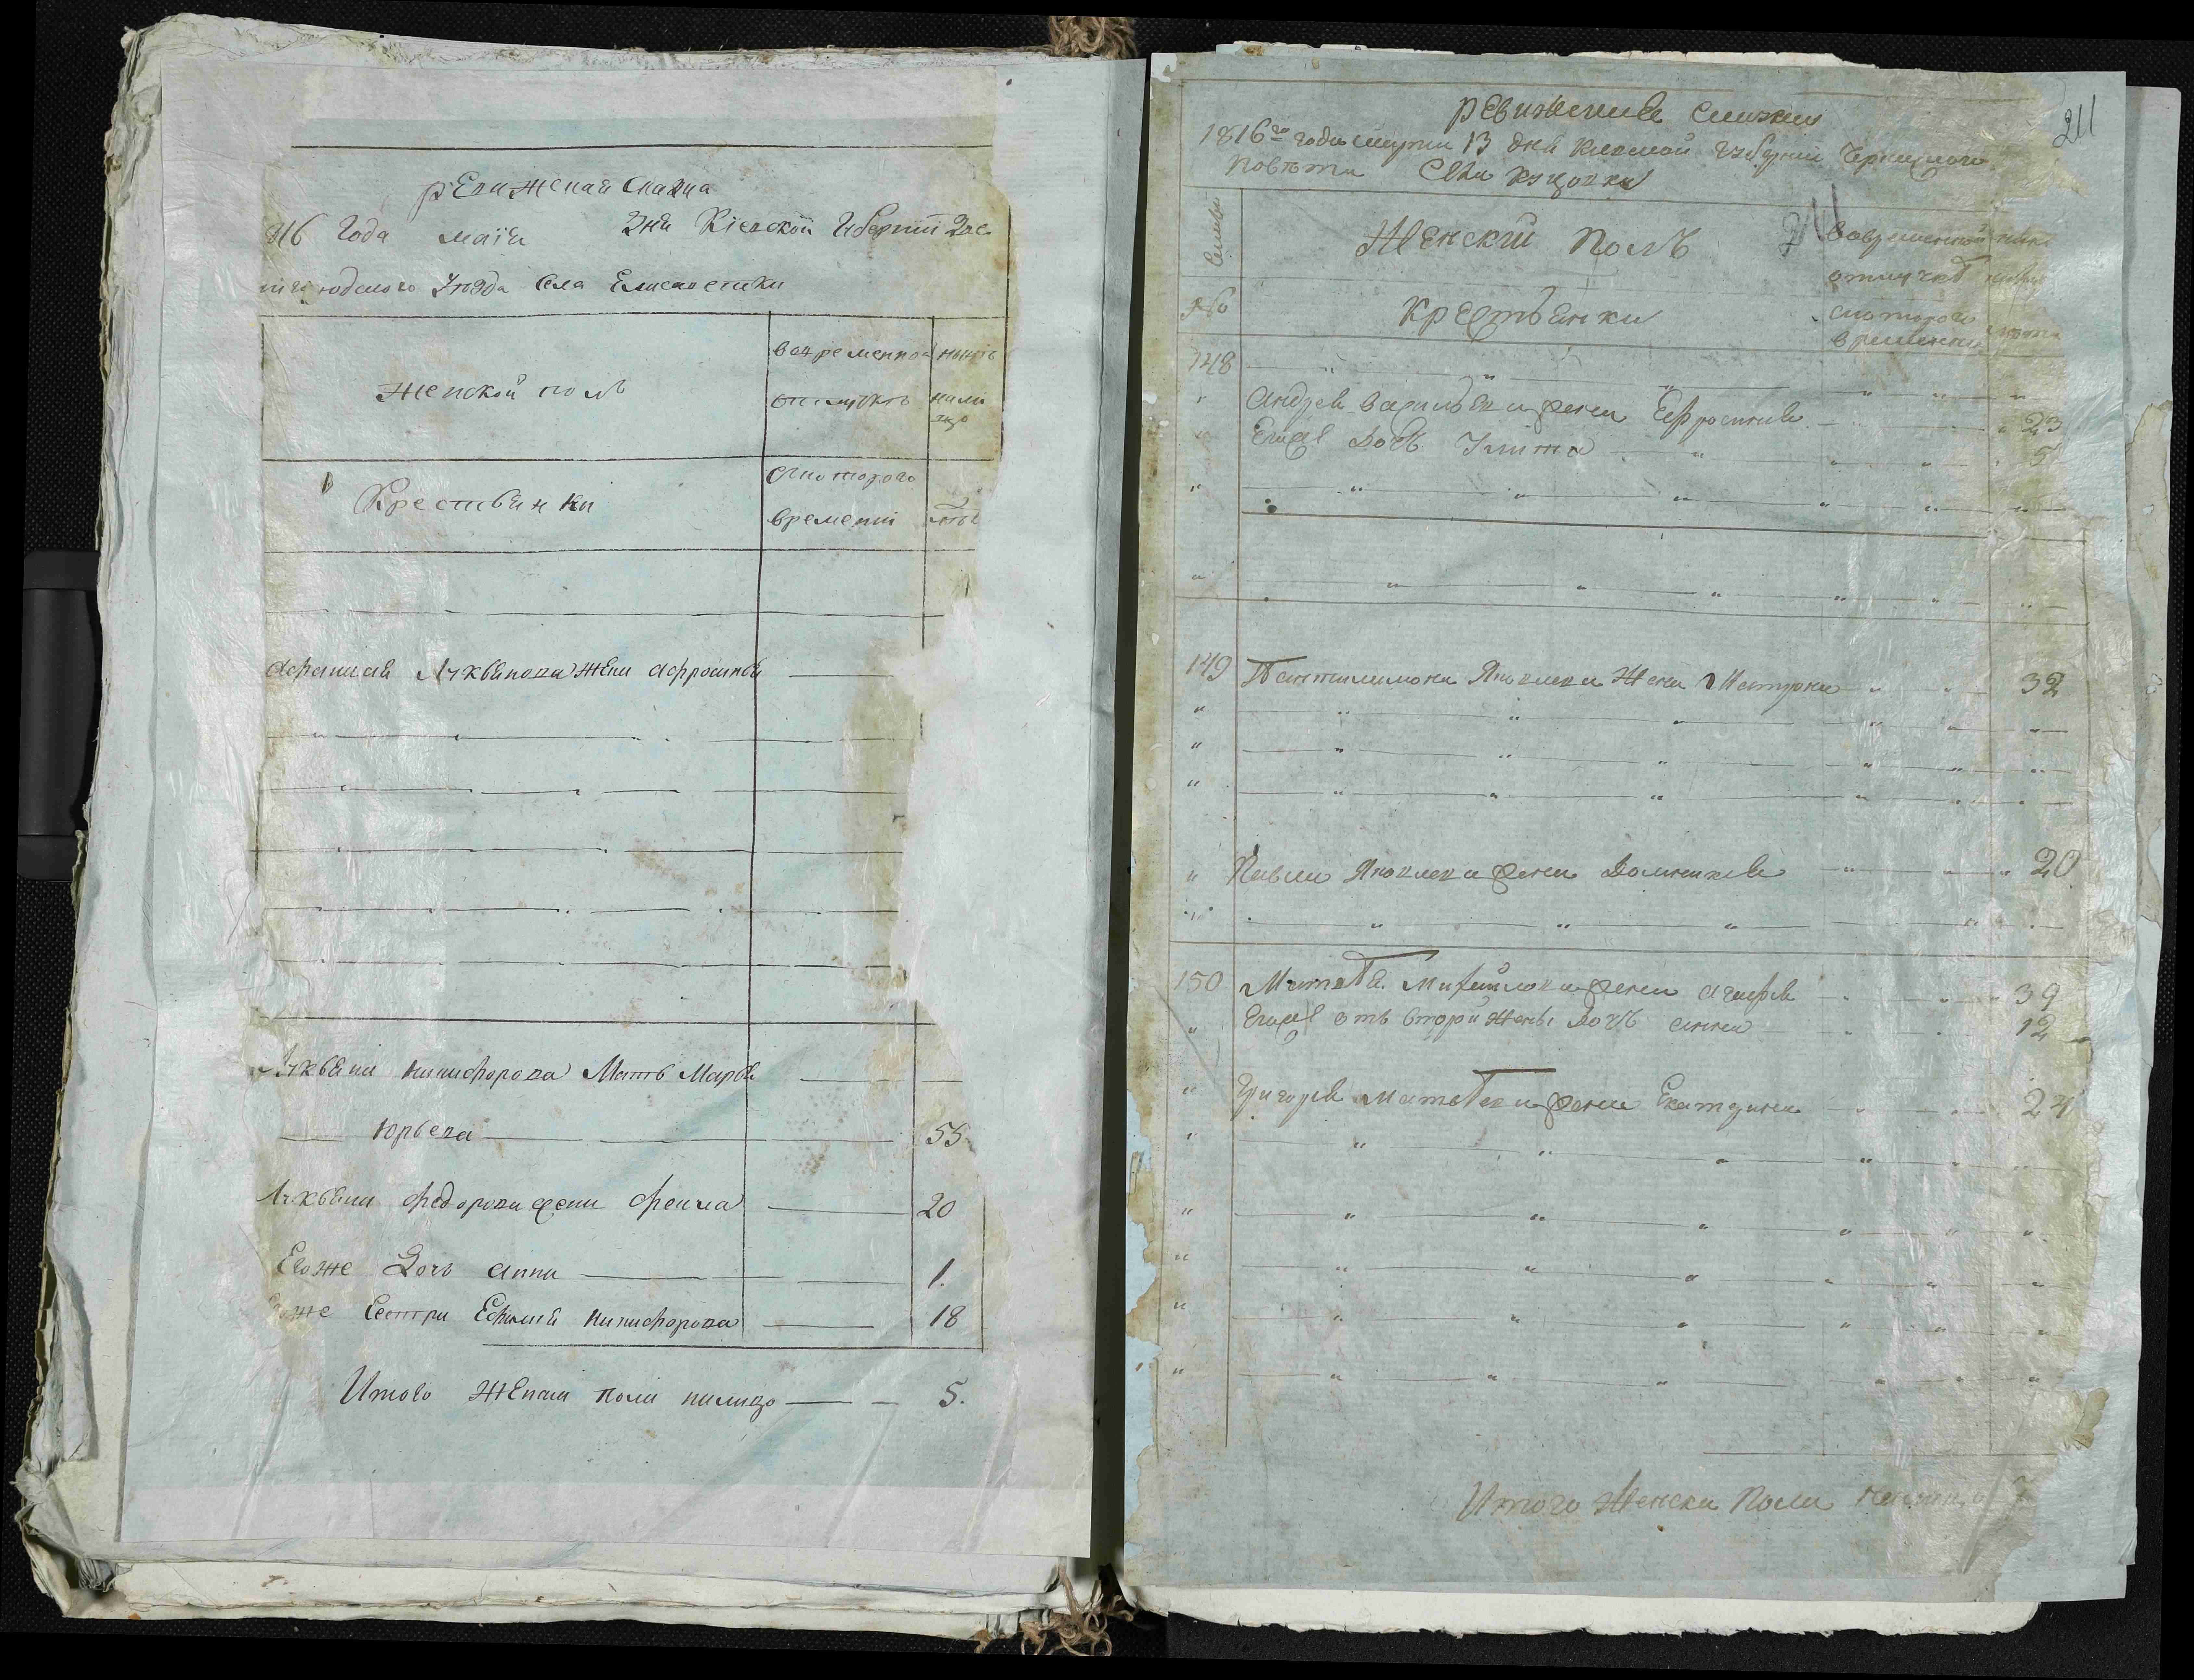 ревижская сказка
816 Года маия дня Кіевской Губерніи Зве
нигородского Уезда села Елисаветки
женской полъ
во временной
отлучкѣ
ныне
нали
цо
Крестьянки
с которого
времени
лета
Афанасия Лукьянова жена Афросинья
Лукьяна Никифорова Мать Марья
Юрьева 55
Лукьяна Федорова жена Фекла 20
Его же Дочь Анна 1.
Его же Сестра Ефимия Никифорова 18
Итого женска пола налицо 5.
211
ревижская сказка
1816го года марта 13 дня Киевской Губернии Черкаского
Повѣта Села
Семьи
Женский Полъ
во временной
отлучке
ныне
№
Крестьянки
с которого
времени
лета
148
Андрея Васильева жена Ефросиния 23
Его дочь Улита 5
149 Пантилимона Яковлева Жена Мотрона 32
Павла Яковлева жена Домникия 20
150 Матвея Михайлова жена Агафия 39
Его от второй жены дочь Анна 12
Григория Матвеева жена Екатерина 24
Итого Женска Пола налицо 7